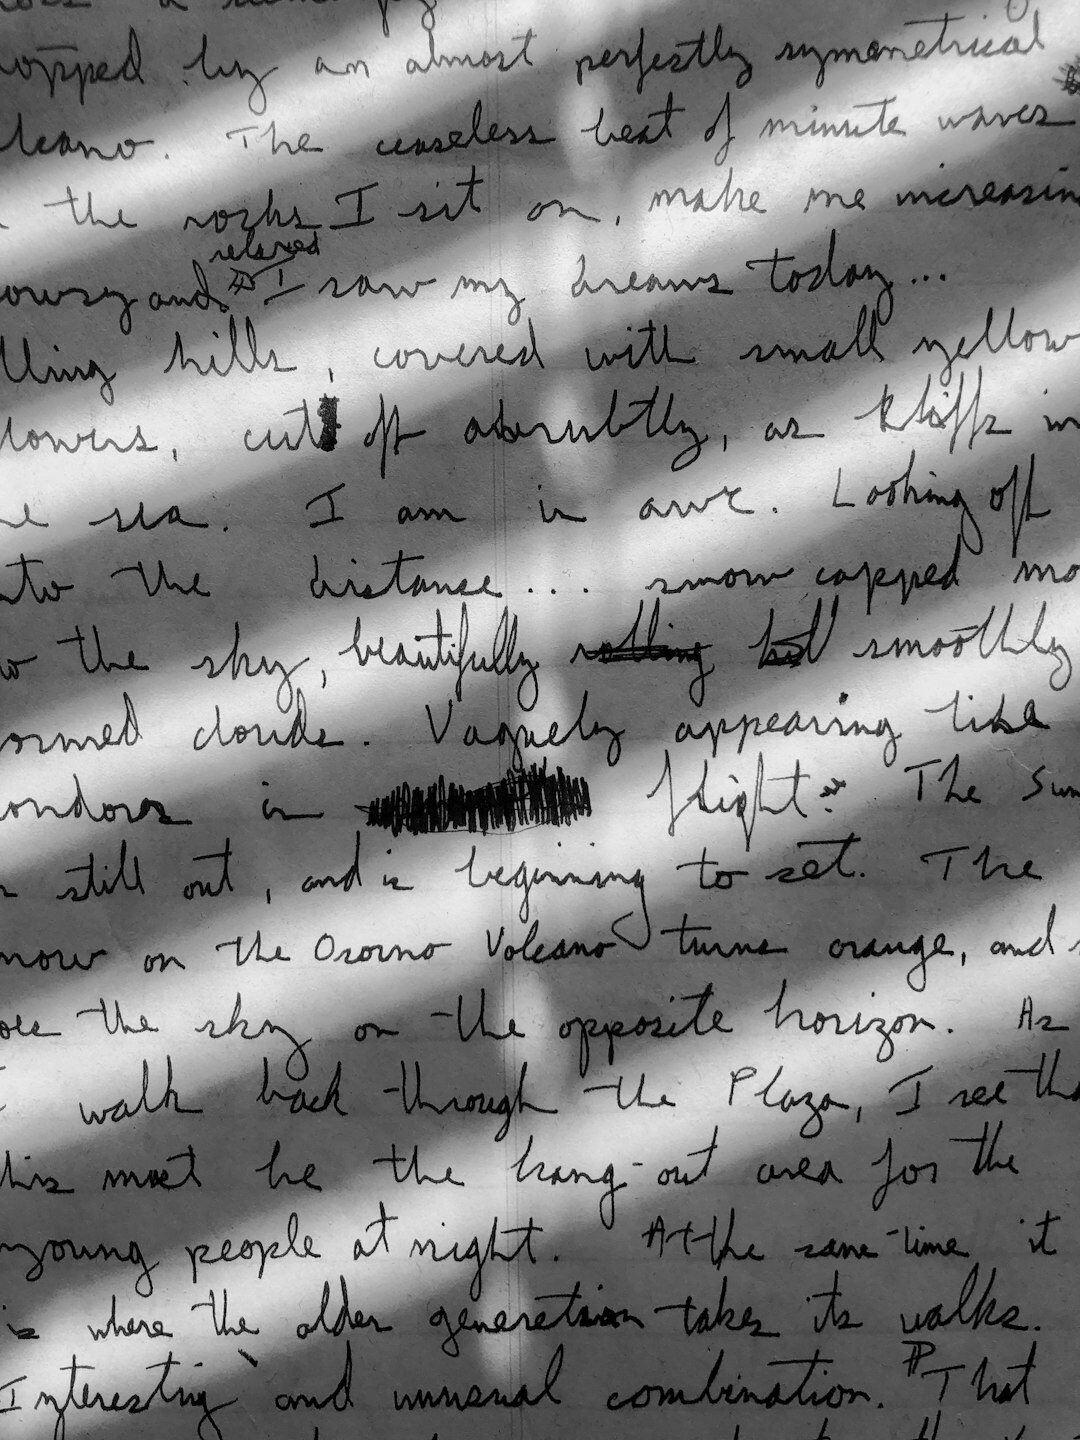 by an almost perfectly symmetrical
The ceaseless beat of minute waves
the rocks I sit on, make me
relaxed
and I saw my dreams today...
hills, covered with small yellow
cut off abrubtly, as kliffs
sea. I am in awe. Looking off
the distance... snow capped
the sky, beautifully rolling smoothly
clouds. Vaguely appearing like
condors in flight. The Sun
still out, and is beginning to set. The
on the Osorno Volcano turns orange, and
the sky on the opposite horizon. As
walk back through the Plaza, I see
must be the hang-out area for the
young people at night. At the same-time it
is where the older generation takes its walks.
Interesting and unusual combination. That